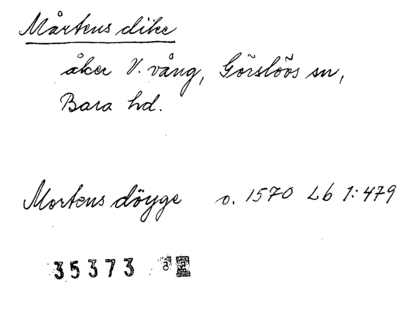 Mårtens dike
åker V. vång, Görslöös sn,
Bara hd.
Mortens döyge o. 1570 Lb 1:479
35373